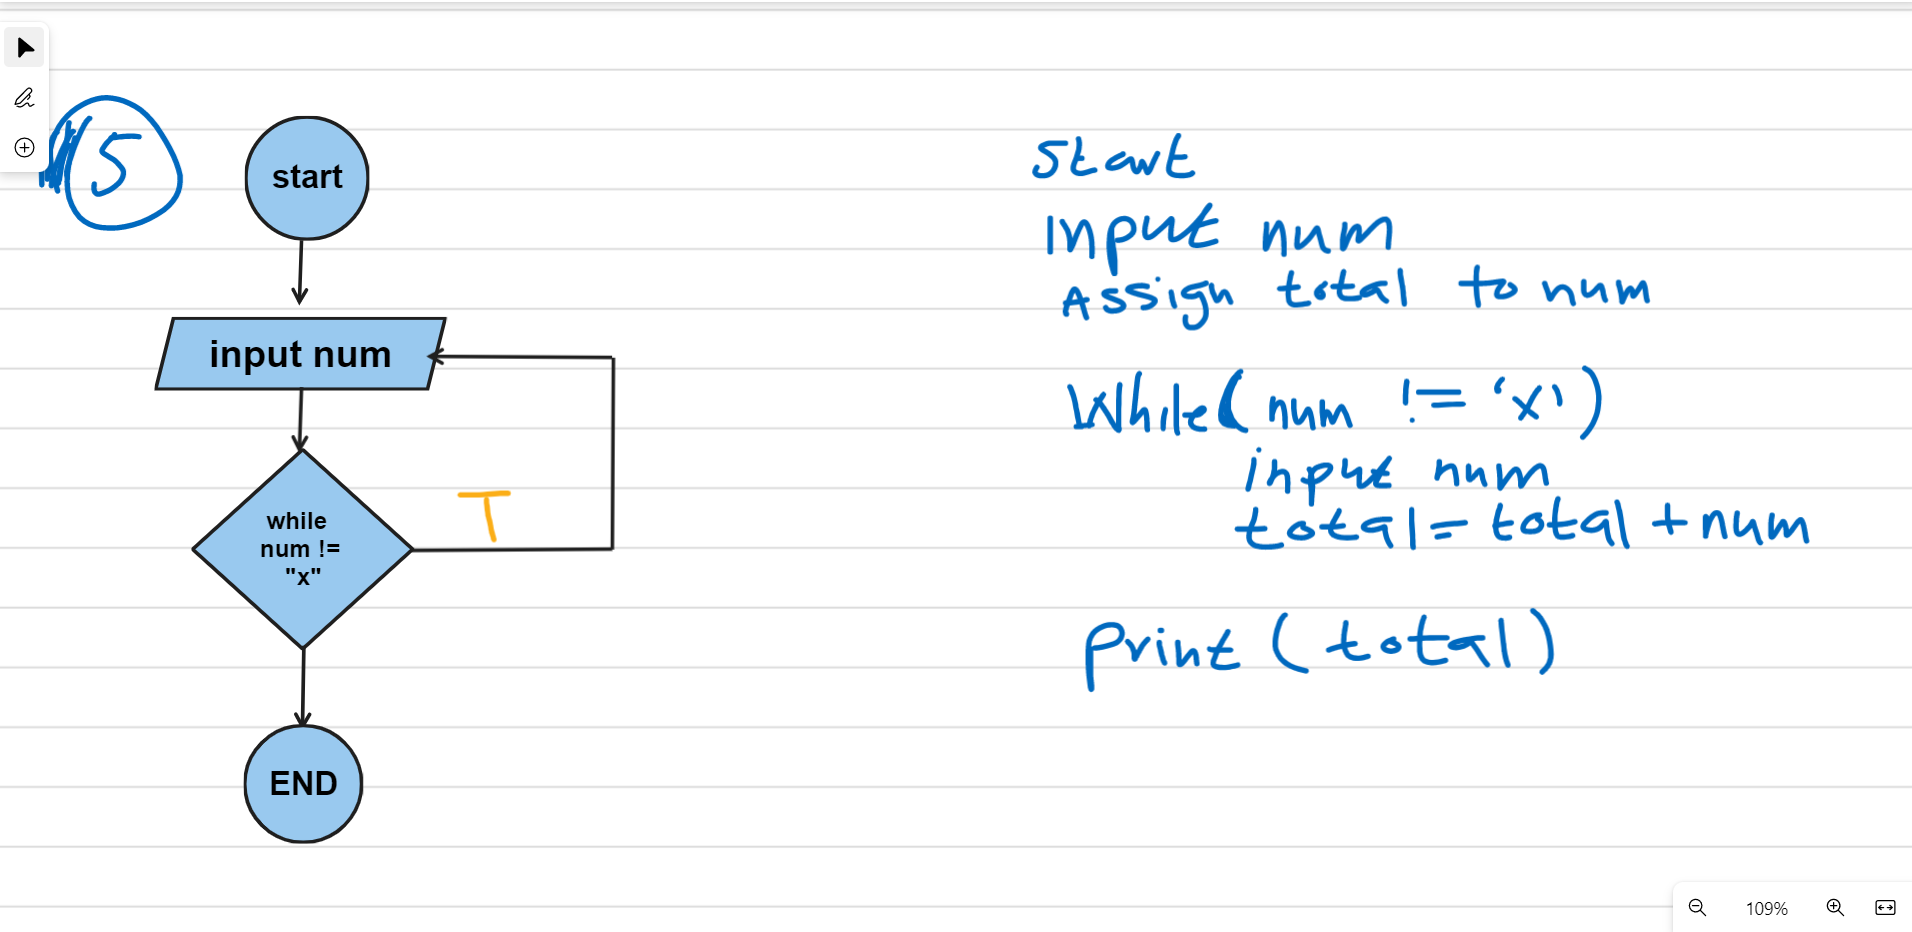 5
start
input num
T
while
num !=
"x"
END
Start
Input num
Assign total to num
While( num != 'x')
input num
total = total + num
print (total)
109%